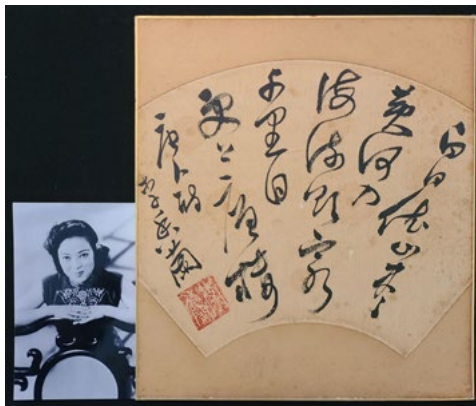 白日依山尽
黄河入
海流欲窮
千里目
更上一層樓
唐人詩
李香蘭